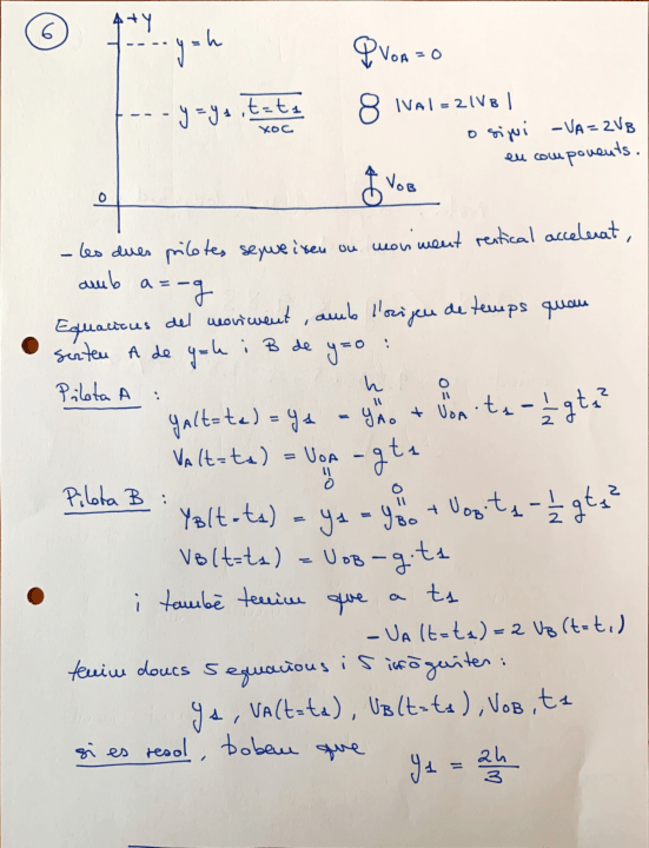 6
+y
y=h
V₀A = 0
y = y₁, t = t₁
xoc
|VA| = 2|VB|
o sigui -VA = 2VB
en components.
0
V₀B
- les dues pilotes segueixen un moviment vertical accelerat,
amb a = -g
Equacions del moviment, amb l'origen de temps quan
surten A de y=h i B de y=0 :
Pilota A :
h 0
yA(t=t₁) = y₁ = yA₀ + V₀A · t₁ - 1/2 gt₁²
VA(t=t₁) = V₀A - gt₁
0
Pilota B :
0
YB(t=t₁) = y₁ = yB₀ + V₀B · t₁ - 1/2 gt₁²
VB(t=t₁) = V₀B - g·t₁
i també tenim que a t₁
- VA (t=t₁) = 2 VB (t=t₁)
tenim doncs 5 equacions i 5 incògnites :
y₁, VA(t=t₁), VB(t=t₁), V₀B, t₁
si es resol, trobem que
y₁ = 2h/3